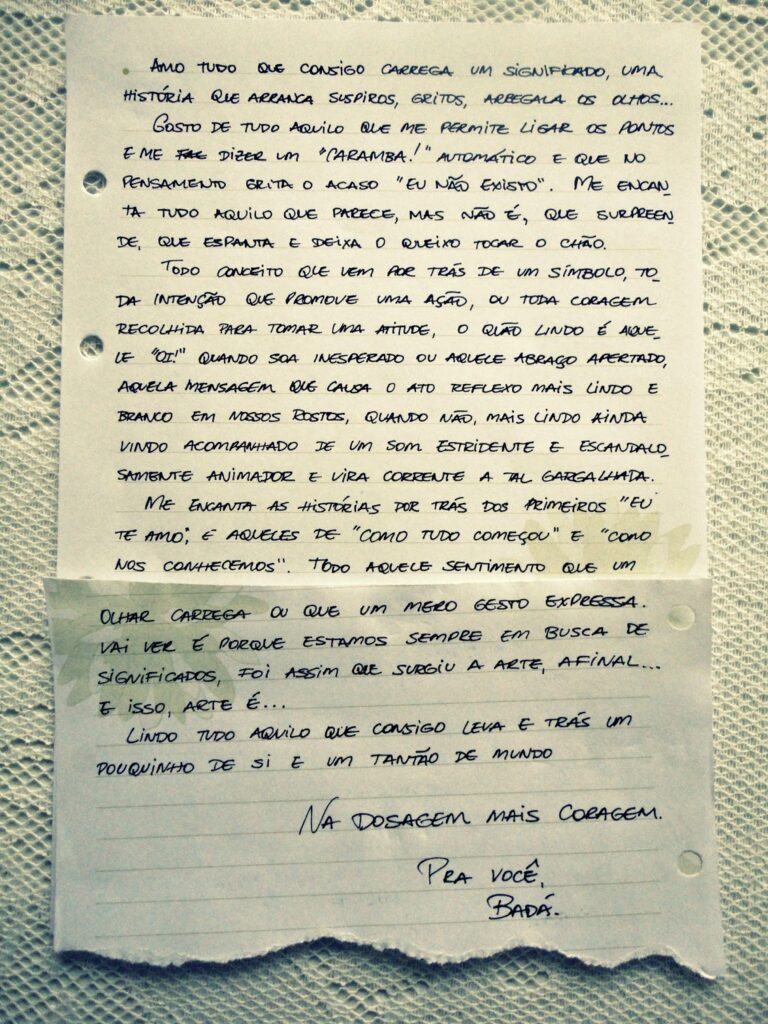 AMO TUDO QUE CONSIGO CARREGA UM SIGNIFICADO, UMA
HISTÓRIA QUE ARRANCA SUSPIROS, GRITOS, ARREGALA OS OLHOS...
GOSTO DE TUDO AQUILO QUE ME PERMITE LIGAR OS PONTOS
E ME DIZER UM "CARAMBA!" AUTOMÁTICO E QUE NO
PENSAMENTO GRITA O ACASO "EU NÃO EXISTO". ME ENCAN
TA TUDO AQUILO QUE PARECE, MAS NÃO É, QUE SURPREEN
DE, QUE ESPANTA E DEIXA O QUEIXO TOCAR O CHÃO.
TODO CONCEITO QUE VEM POR TRÁS DE UM SÍMBOLO, TO
DA INTENÇÃO QUE PROMOVE UMA AÇÃO, OU TODA CORAGEM
RECOLHIDA PARA TOMAR UMA ATITUDE, O QUÃO LINDO É AQUE
LE "OI!" QUANDO SOA INESPERADO OU AQUELE ABRAÇO APERTADO,
AQUELA MENSAGEM QUE CAUSA O ATO REFLEXO MAIS LINDO E
BRANCO EM NOSSOS ROSTOS, QUANDO NÃO, MAIS LINDO AINDA
VINDO ACOMPANHADO DE UM SOM ESTRIDENTE E ESCANDALO
SAMENTE ANIMADOR E VIRA CORRENTE A TAL GARGALHADA.
ME ENCANTA AS HISTÓRIAS POR TRÁS DOS PRIMEIROS "EU
TE AMO", E AQUELES DE "COMO TUDO COMEÇOU" E "COMO
NOS CONHECEMOS". TODO AQUELE SENTIMENTO QUE UM
OLHAR CARREGA OU QUE UM MERO GESTO EXPRESSA.
VAI VER É PORQUE ESTAMOS SEMPRE EM BUSCA DE
SIGNIFICADOS, FOI ASSIM QUE SURGIU A ARTE, AFINAL...
E ISSO, ARTE É...
LINDO TUDO AQUILO QUE CONSIGO LEVA E TRÁS UM
POUQUINHO DE SI E UM TANTÃO DE MUNDO
NA DOSAGEM MAIS CORAGEM.
PRA VOCÊ,
BADÁ.